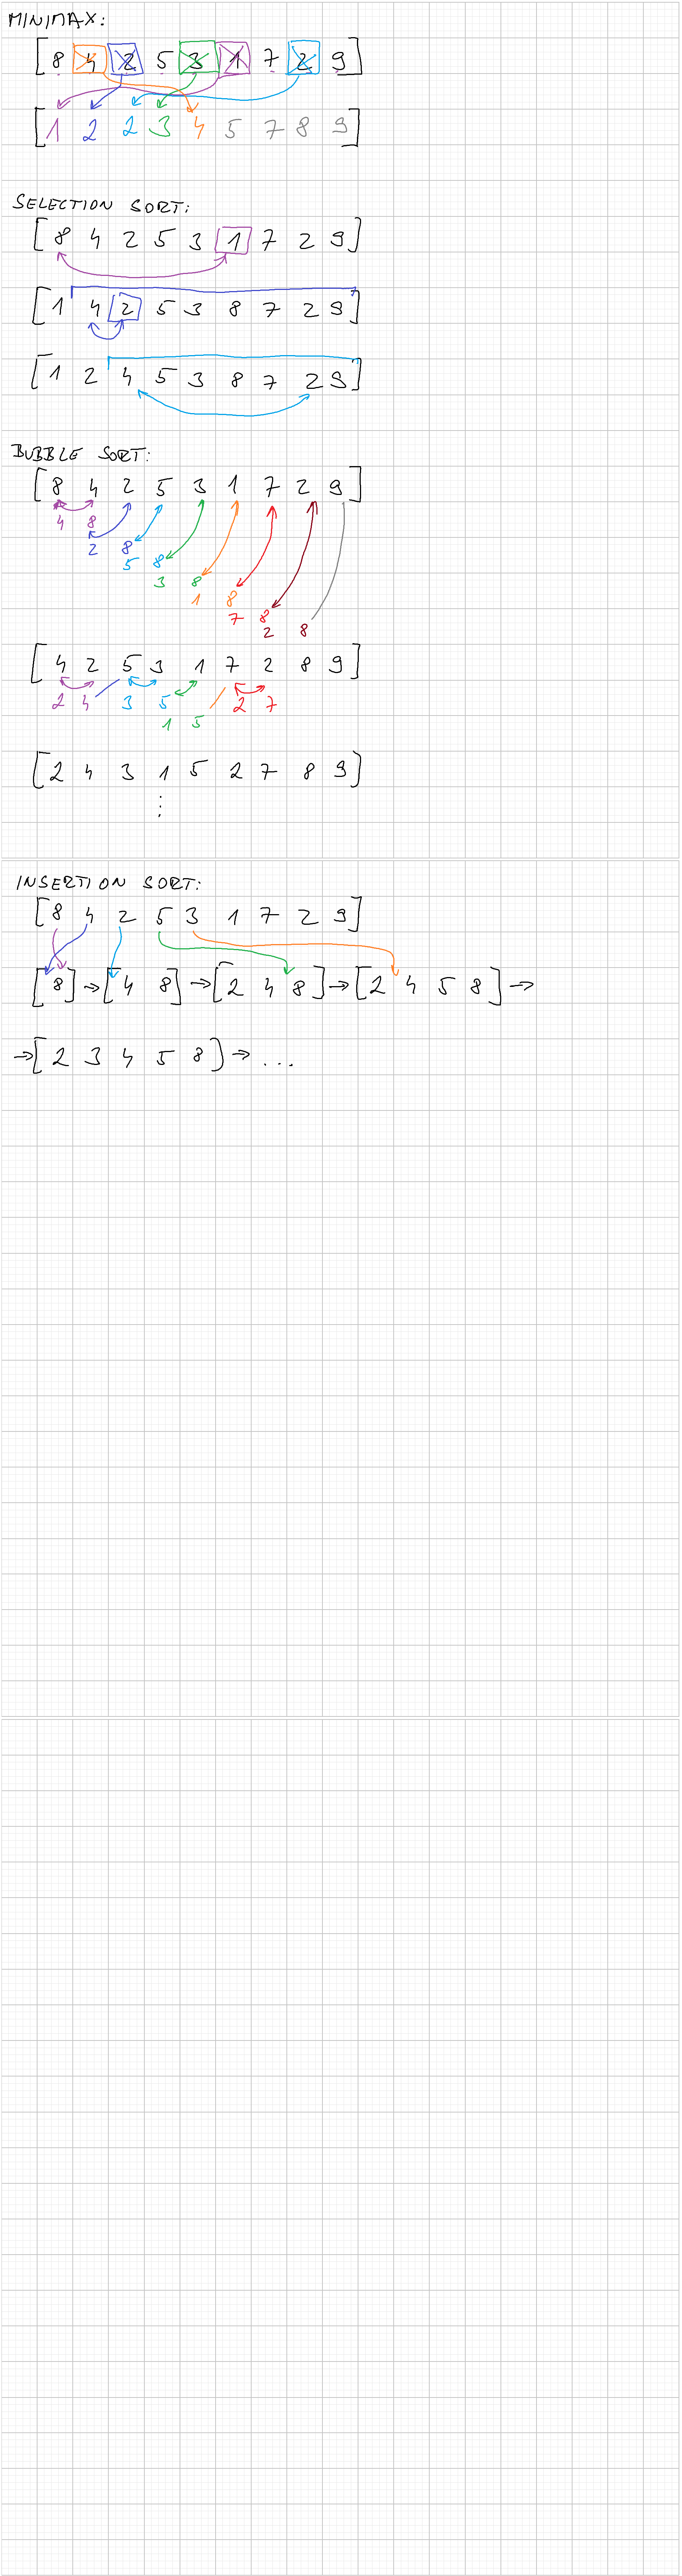 MINIMAX:
[8 4 2 5 3 1 7 2 9]
[1 2 2 3 4 5 7 8 9]
SELECTION SORT:
[8 4 2 5 3 1 7 2 9]
[1 4 2 5 3 8 7 2 9]
[1 2 4 5 3 8 7 2 9]
BUBBLE SORT:
[8 4 2 5 3 1 7 2 9]
4 8
2 8
5 8
3 8
1 8
7 8
2 8
[4 2 5 3 1 7 2 8 9]
2 4 3 5 2 7
1 5
[2 4 3 1 5 2 7 8 9]
⋮
INSERTION SORT:
[8 4 2 5 3 1 7 2 9]
[8] → [4 8] → [2 4 8] → [2 4 5 8] →
→ [2 3 4 5 8] → ...